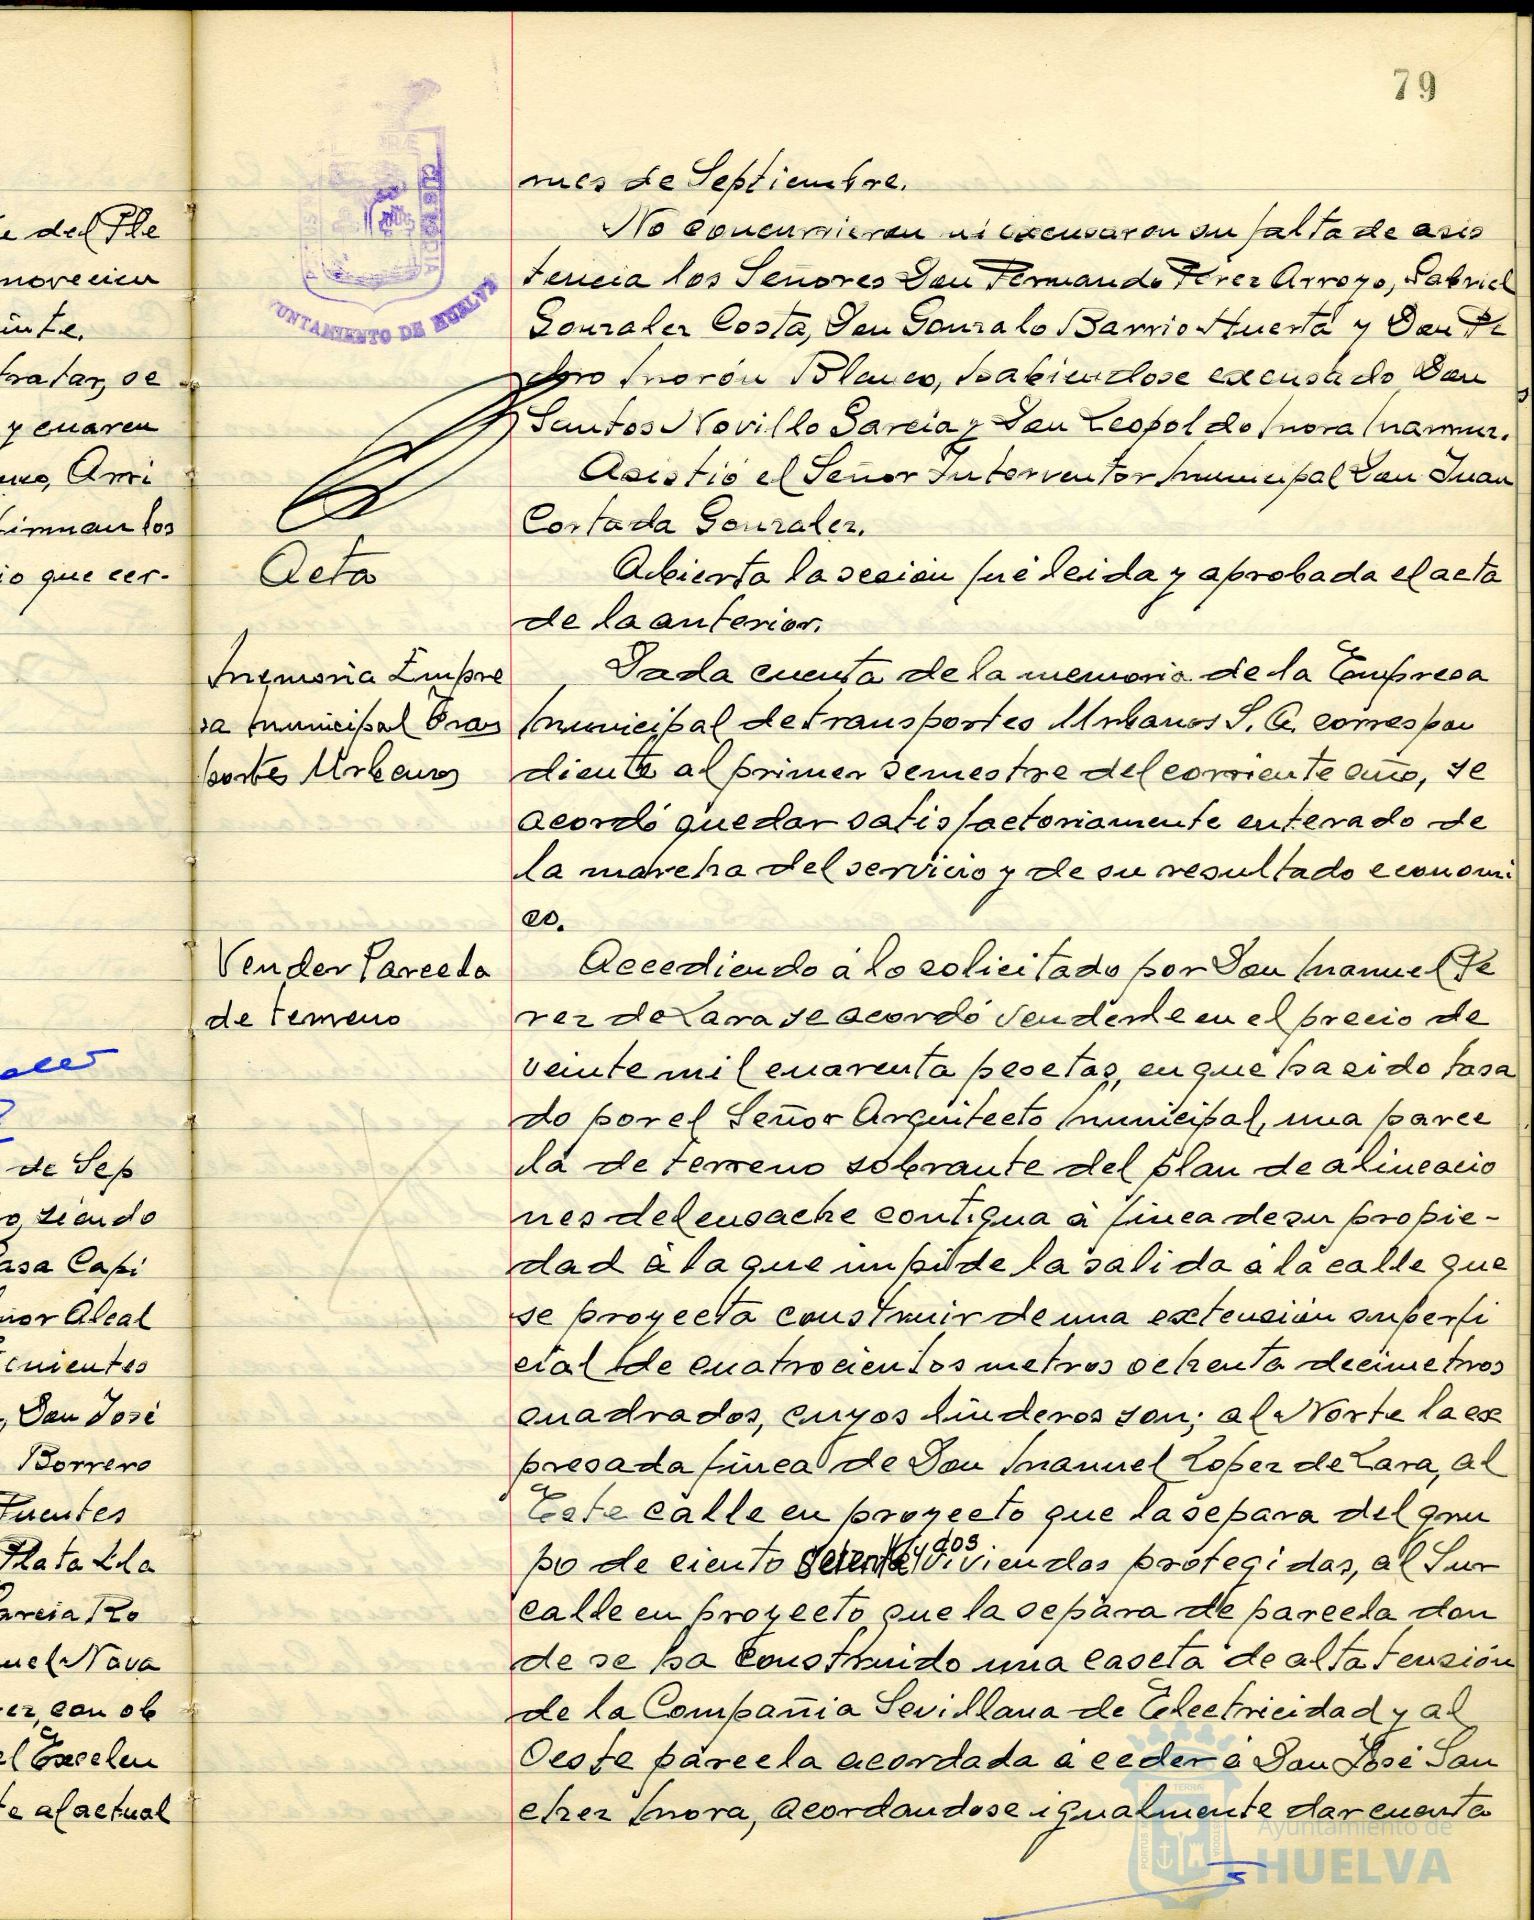 79
mes de Septiembre.
No concurrieron ni excusaron su falta de asis
tencia los Señores Don Fernando Pérez Arroyo, Gabriel
Gonzalez Costa, Don Gonzalo Barrio Huerta y Don Pe
dro Morón Blanco, habiendose excusado Don
Santos Novillo Garcia y Don Leopoldo Mora
Asistió el Señor Interventor Municipal Don Juan
Cortada Gonzalez.
Acta
Abierta la sesión fué leida y aprobada el acta
de la anterior.
Memoria Empre
sa Municipal Trans
portes Urbanos
Dada cuenta de la memoria de la Empresa
Municipal de transportes Urbanos S. A. correspon
diente al primer semestre del corriente año, se
acordó quedar satisfactoriamente enterado de
la marcha del servicio y de su resultado economi
co.
Vender Parcela
de terreno
Accediendo á lo solicitado por Don Manuel Pe
rez de Lara se acordó venderle en el precio de
veinte mil cuarenta pesetas, en que ha sido tasa
do por el Señor Arquitecto Municipal, una parce
la de terreno sobrante del plan de alineacio
nes del ensache contigua á finca de su propie-
dad á la que impide la salida á la calle que
se proyecta construir de una extensión superfi
cial de cuatrocientos metros ochenta decimetros
cuadrados, cuyos linderos son; al Norte la ex
presada finca de Don Manuel Lopez de Lara, al
Este calle en proyecto que la separa del gru
po de ciento setenta y dos viviendas protegidas, al Sur
calle en proyecto que la separa de parcela don
de se ha construido una caseta de alta tensión
de la Compañia Sevillana de Electricidad y al
Oeste parcela acordada á ceder á Don José San
chez Mora, acordandose igualmente dar cuenta
e del Ple
novecien
inte.
tratar, se
y cuaren
Arri
firman los
io que cer-
de Sep
o, siendo
Casa Capi
ñor Alcal
Tenientes
, Don José
Borrero
Fuentes
Plata Lla
Garcia Ro
uel Nava
ez, con ob
el Excelen
te al actual
CUSTODIA
AYUNTAMIENTO DE HUELVA
Ayuntamiento de
HUELVA